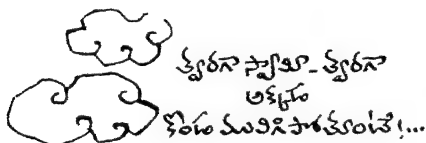 త్వరగా స్వామీ - త్వరగా
అక్కడ
కొండ మునిగిపోతూంటే!...